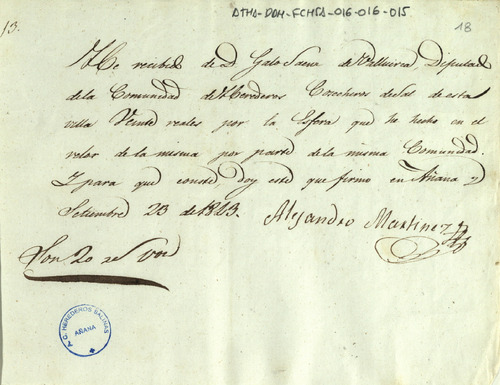 ATHA-DAH-FCHSA-016-016-015
18
13.
He recibido de D Galo Saenz de Diputad
de la Comunidad de Herederos Cosecheros de Sal de esta
villa Veinte reales por la Esfera que ha hecho en el
relox de la misma por parte de la misma Comunidad.
Y para que conste, doy este que firmo en Añana y
Setiembre 23 de 1843.
Alejandro Martinez
Son 20 rs von
T. C. HEREDEROS SALINAS
AÑANA